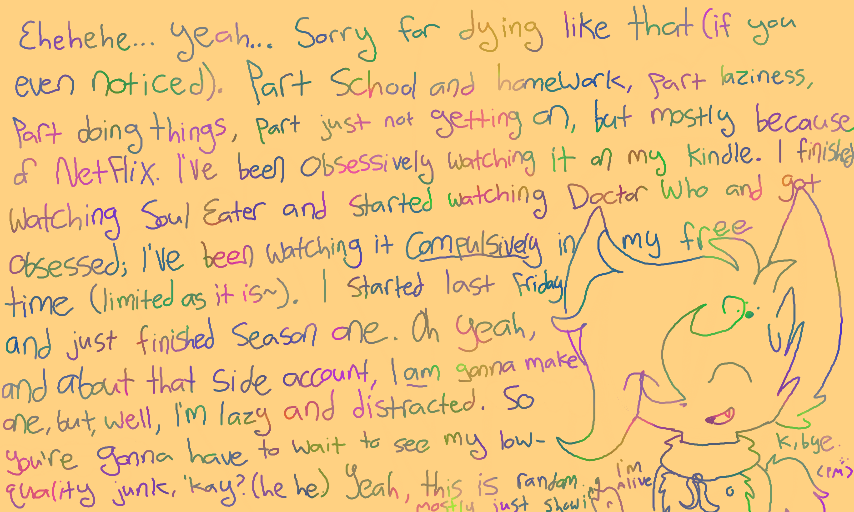 Ehehehe... yeah... Sorry for dying like that (if you
even noticed). Part School and homework, part laziness,
part doing things, part just not getting on, but mostly because
of NetFlix. I've been obsessively watching it on my Kindle. I finished
watching Soul Eater and started watching Doctor Who and got
obsessed; I've been watching it compulsively in my free
time (limited as it is~). I started last Friday
and just finished season one. Oh yeah,
and about that side account, I am gonna make
one, but, well, I'm lazy and distracted. So
you're gonna have to wait to see my low-
quality junk, 'kay? (he he) Yeah, this is random.
mostly just showing
I'm
alive
K, bye.